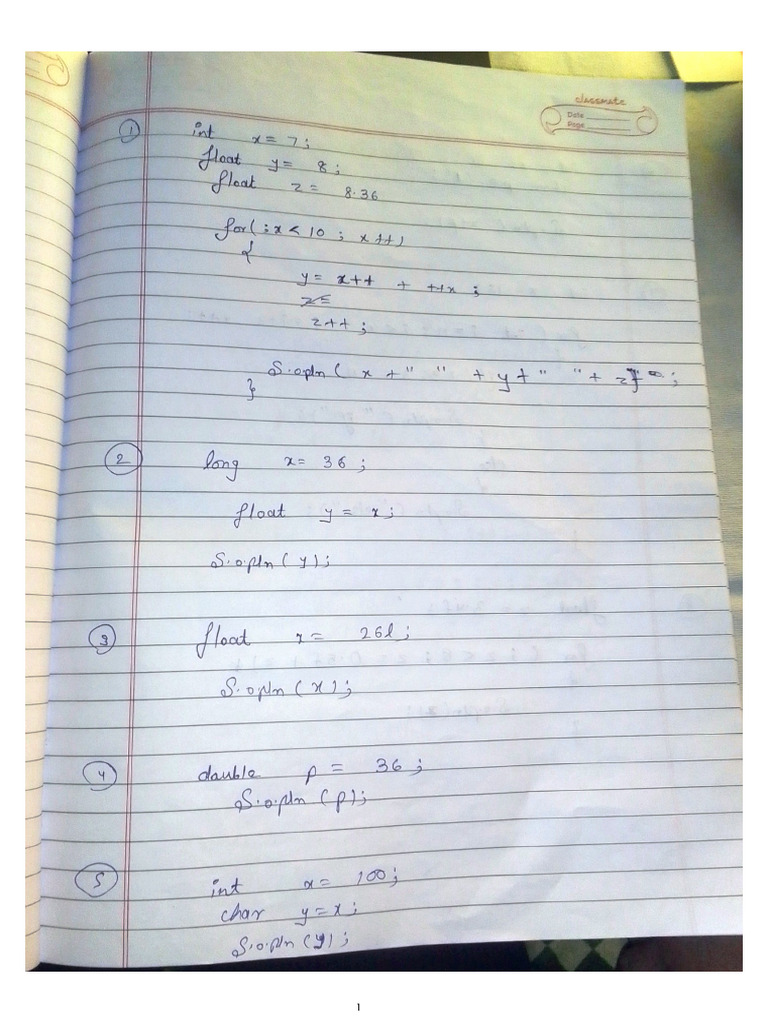 classmate
Date
Page
1 int x = 7;
float y = 8;
float z = 8.36
for(; x < 10; x++)
{
y = x++ + ++x;
z++;
S.o.pln( x + " " + y + " " + z
}
2 long x = 36;
float y = x;
S.o.pln(y);
3 float x = 26l;
S.o.pln(x);
4 dauble p = 36;
S.o.pln(p);
5 int x = 100;
char y = x;
S.o.pln(y);
1